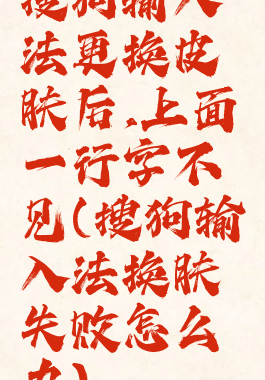 搜狗输入
法更换皮
肤后,上面
一行字不
见(搜狗输
入法换肤
失败怎么
办)